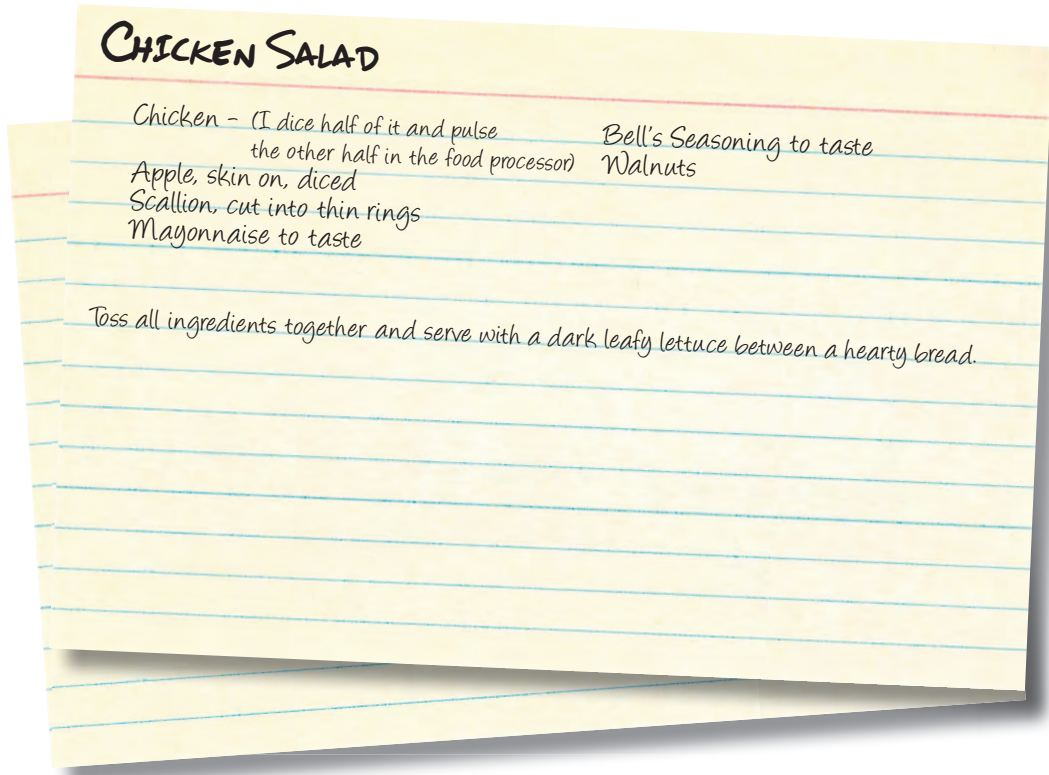 CHICKEN SALAD
Chicken - (I dice half of it and pulse
the other half in the food processor)
Apple, skin on, diced
Scallion, cut into thin rings
Mayonnaise to taste
Bell's Seasoning to taste
Walnuts
Toss all ingredients together and serve with a dark leafy lettuce between a hearty bread.